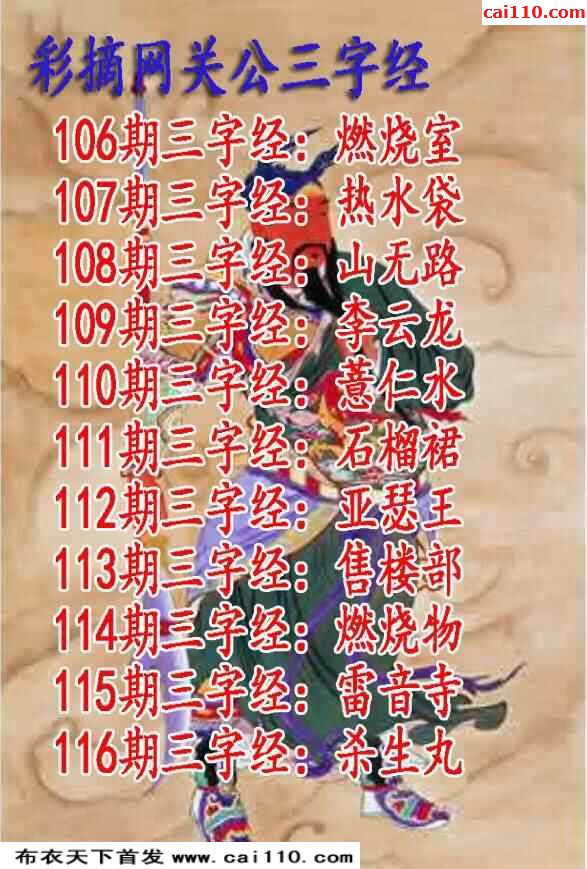 cai110.com
彩摘网关公三字经
106期三字经：燃烧室
107期三字经：热水袋
108期三字经：山无路
109期三字经：李云龙
110期三字经：薏仁水
111期三字经：石榴裙
112期三字经：亚瑟王
113期三字经：售楼部
114期三字经：燃烧物
115期三字经：雷音寺
116期三字经：杀生丸
布衣天下首发 www.cai110.com